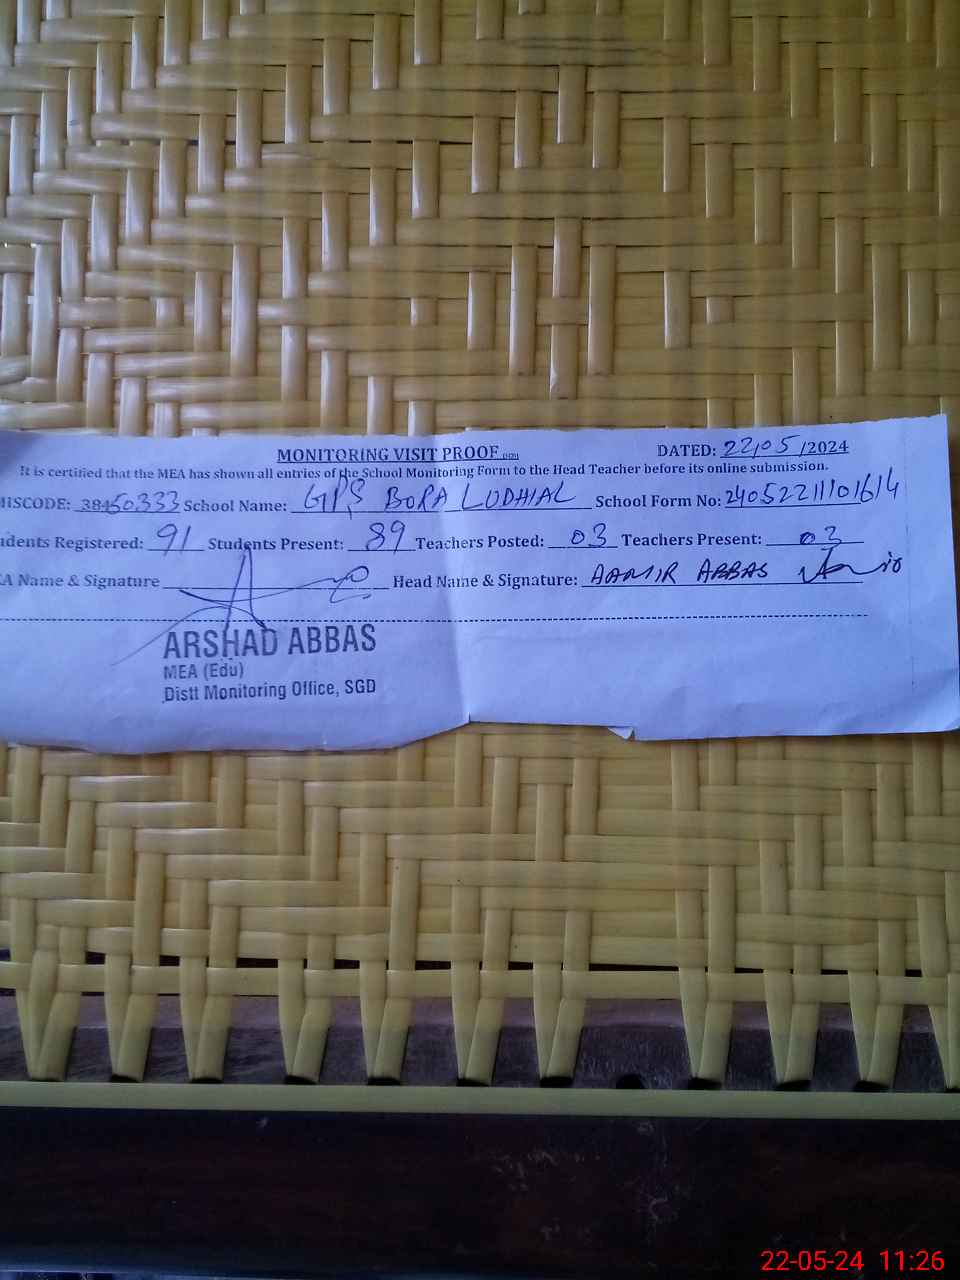 MONITORING VISIT PROOF
DATED: 22/05/2024
It is certified that the MEA has shown all entries of the School Monitoring Form to the Head Teacher before its online submission.
MISCODE: 38450333 School Name: GPS BORA LUDHIAL School Form No: 24052211101614
udents Registered: 91 Students Present: 89 Teachers Posted: 03 Teachers Present: 03
A Name & Signature Head Name & Signature: AAMIR ABBAS
ARSHAD ABBAS
MEA (Edu)
Distt Monitoring Office, SGD
22-05-24 11:26